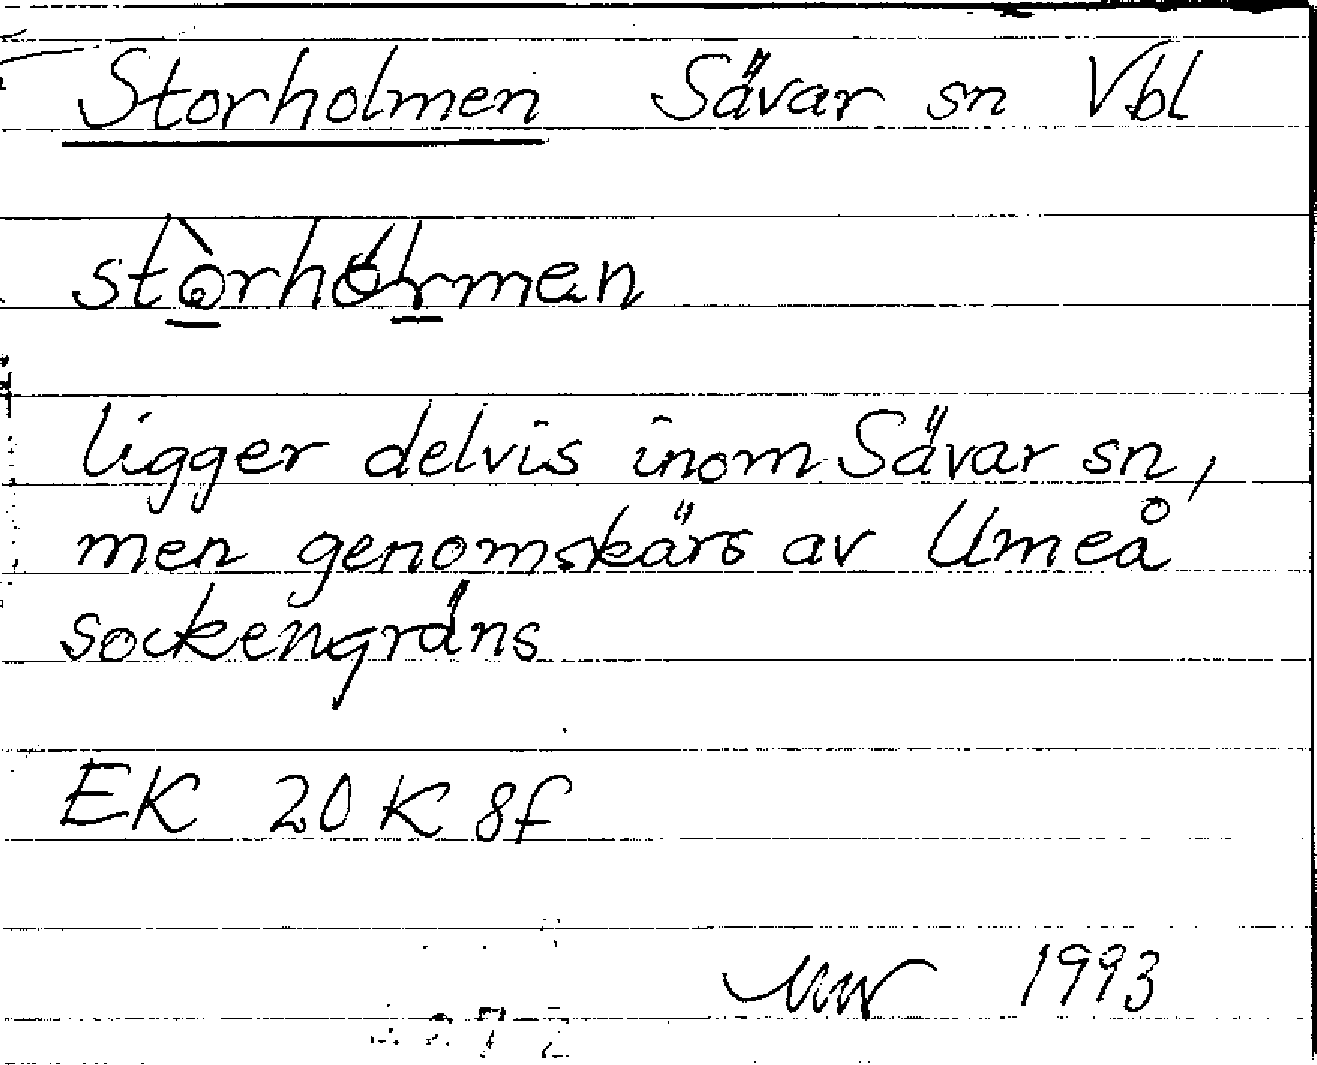 Storholmen Sävar sn Vbl
stòrhólmen
ligger delvis inom Sävar sn,
men genomskärs av Umeå
sockengräns
EK 20 K 8f
1993